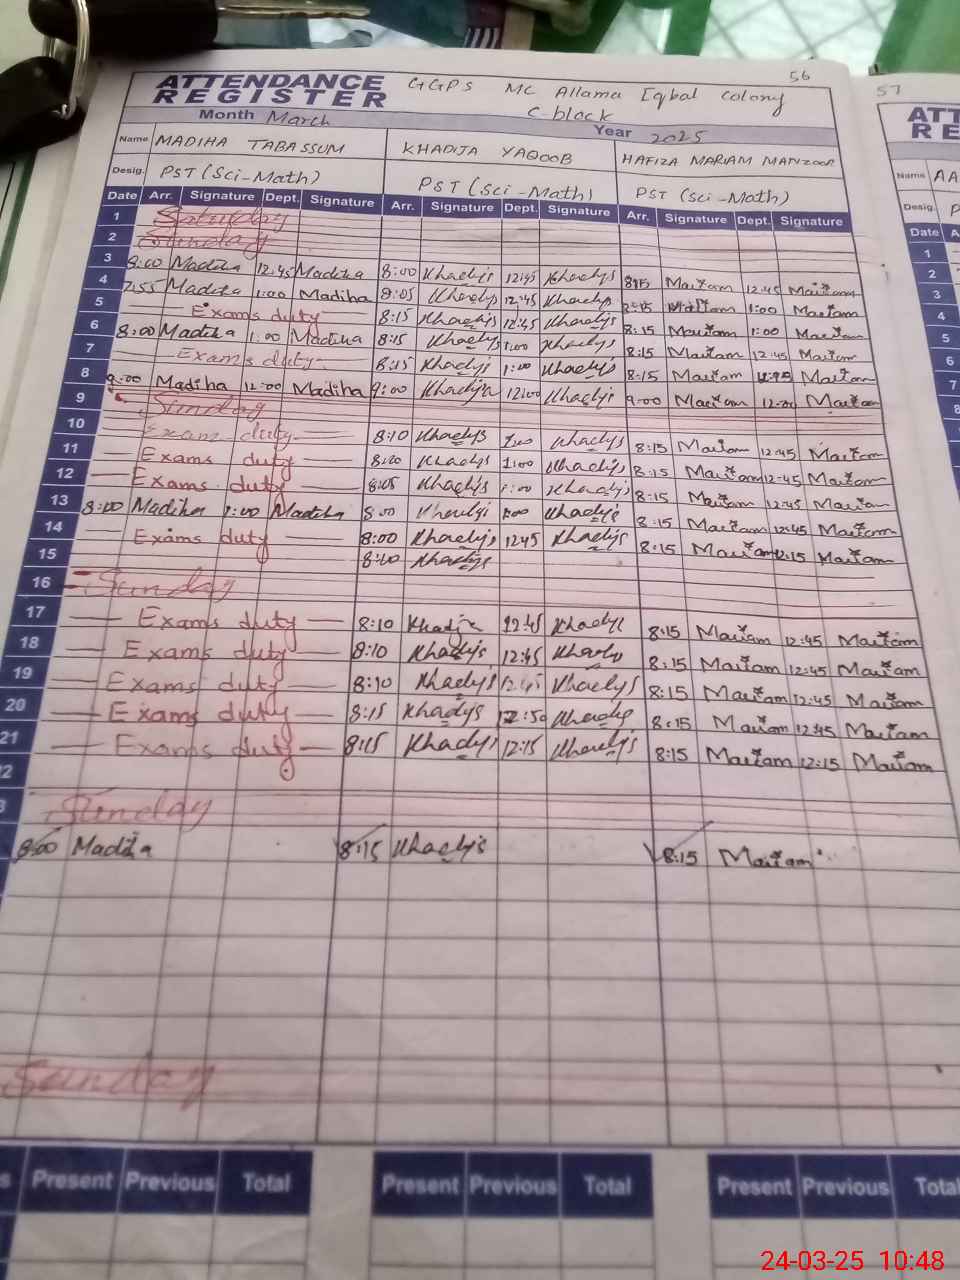 56
ATTENDANCE REGISTER GGPS MC Allama Iqbal Colony
C-block
Month March Year 2025
Name MADIHA TABASSUM KHADIJA YAQOOB HAFIZA MARIAM MANZOOR
Desig. PST (Sci-Math) PST (Sci-Math) PST (Sci-Math)
Date Arr. Signature Dept. Signature Arr. Signature Dept. Signature Arr. Signature Dept. Signature
1 Saturday
2 Sunday
3 8:00 Madiha 12:45 Madiha 8:00 Khadija 12:45 Khadija 8:15 Mariam 12:45 Mariam
4 7:55 Madiha 1:00 Madiha 8:05 Khadija 12:45 Khadija 8:15 Mariam 1:00 Mariam
5 Exams duty 8:15 Khadija 12:45 Khadija 8:15 Mariam 1:00 Mariam
6 8:00 Madiha 1:00 Madiha 8:15 Khadija 1:00 Khadija 8:15 Mariam 12:45 Mariam
7 Exams duty 8:15 Khadija 1:00 Khadija 8:15 Mariam Mariam
8 9:00 Madiha 12:00 Madiha 9:00 Khadija 12:00 Khadija 9:00 Mariam 12:00 Mariam
9 Sunday
10 Exam duty 8:10 Khadija 1:00 Khadija 8:15 Mariam 12:45 Mariam
11 Exams duty 8:10 Khadija 1:00 Khadija 8:15 Mariam 12:45 Mariam
12 Exams duty 8:05 Khadija 1:00 Khadija 8:15 Mariam 12:45 Mariam
13 8:00 Madiha 1:00 Madiha 8:00 Khadija 1:00 Khadija 8:15 Mariam 12:45 Mariam
14 Exams duty 8:00 Khadija 12:45 Khadija 8:15 Mariam 12:15 Mariam
15 8:00 Khadija
16 Sunday
17 Exams duty 8:10 Khadija 12:45 Khadija 8:15 Mariam 12:45 Mariam
18 Exams duty 8:10 Khadija 12:45 Khadija 8:15 Mariam 12:45 Mariam
19 Exams duty 8:10 Khadija 12:45 Khadija 8:15 Mariam 12:45 Mariam
20 Exams duty 8:15 Khadija 12:50 Khadija 8:15 Mariam 12:45 Mariam
21 Exams duty 8:15 Khadija 12:15 Khadija 8:15 Mariam 12:15 Mariam
2
3 Sunday
8:00 Madiha 8:15 Khadija 8:15 Mariam
Sunday
s Present Previous Total Present Previous Total Present Previous Total
57
ATT
RE
Name AA
Desig. P
Date A
1
2
3
4
5
6
7
8
24-03-25 10:48